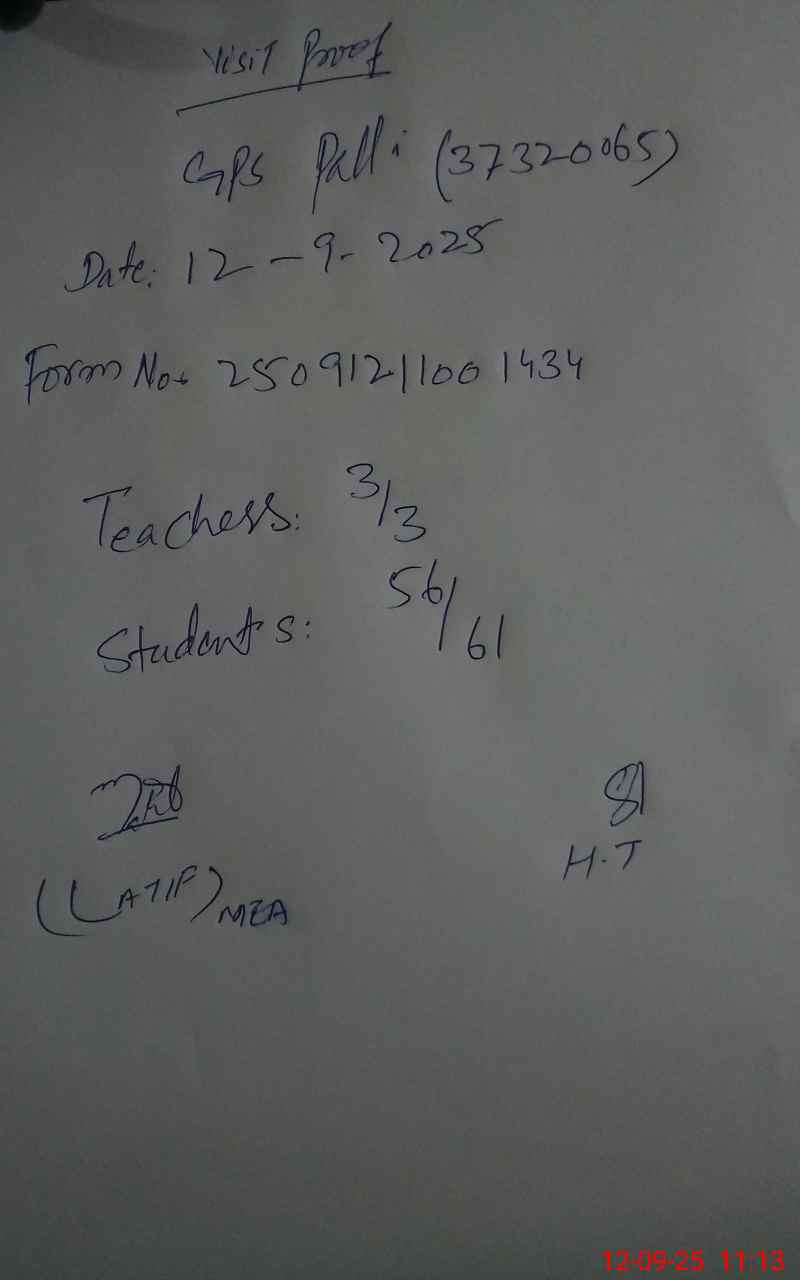 Visit Proof
GPS Palli (37320065)
Date: 12-9-2025
Form No. 25091211001434
Teachers: 3/3
Students: 56/61
(LATIF) MEA
H.T
12-09-25 11:13